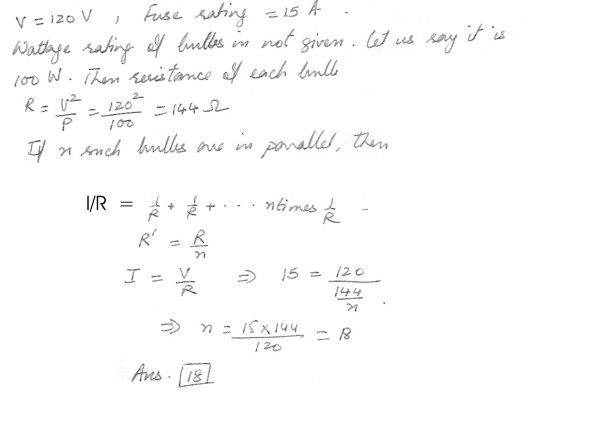 V = 120 V , Fuse rating = 15 A .
Wattage rating of bulbs is not given. Let us say it is
100 W. Then resistance of each bulb
R = V²/P = 120²/100 = 144 Ω
If n such bulbs are in parallel, then
I/R = 1/R + 1/R + . . . n times 1/R -
R' = R/n
I = V/R ⇒ 15 = 120/(144/n) .
⇒ n = 15×144/120 = 18
Ans. 18